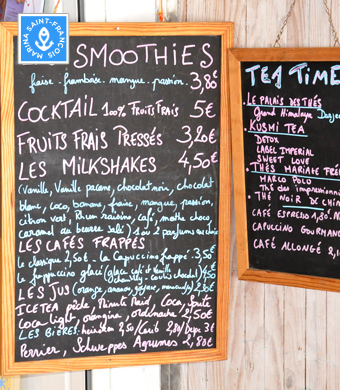 MARINA SAINT-FRANÇOIS
SMOOTHIES
fraise - framboise - mangue - passion. 3,80€
COCKTAIL 100% FRUITS FRAIS 5€
FRUITS FRAIS PRESSÉS 3,20€
LES MILKSHAKES 4,50€
(Vanille, Vanille pacane, chocolat noir, chocolat
blanc, coco, banane, fraise, mangue, passion,
citron vert, Rhum raisins, café, menthe choco
caramel au beurre salé) 1 ou 2 parfums au choix
LES CAFÉS FRAPPÉS
le classique 2,50€ - le Capuccino frappé 3,50€
le frappuccino glacé (glace café et vanille
chantilly - coulis chocolat) 4,50€
LES JUS (orange, ananas, goyave, 2,50€
ICE TEA pêche, Minute Maid, Coca, Sprite
Coca light, orangina, ordinaire 2,50€
LES BIÈRES: heineken 2,50/Carib 2,80/ 3€
Perrier, Schweppes Agrumes 2,80€
TEA TIME
LE PALAIS DES THÉS
Grand Himalaya
KUSMI TEA
DETOX
LABEL IMPERIAL
SWEET LOVE
THÉS MARIAGE
MARCO POLO
THÉ DES
THÉ NOIR DE
CAFÉ EXPRESSO 1,80
CAPUCCINO GOURMAND
CAFÉ ALLONGÉ 2,